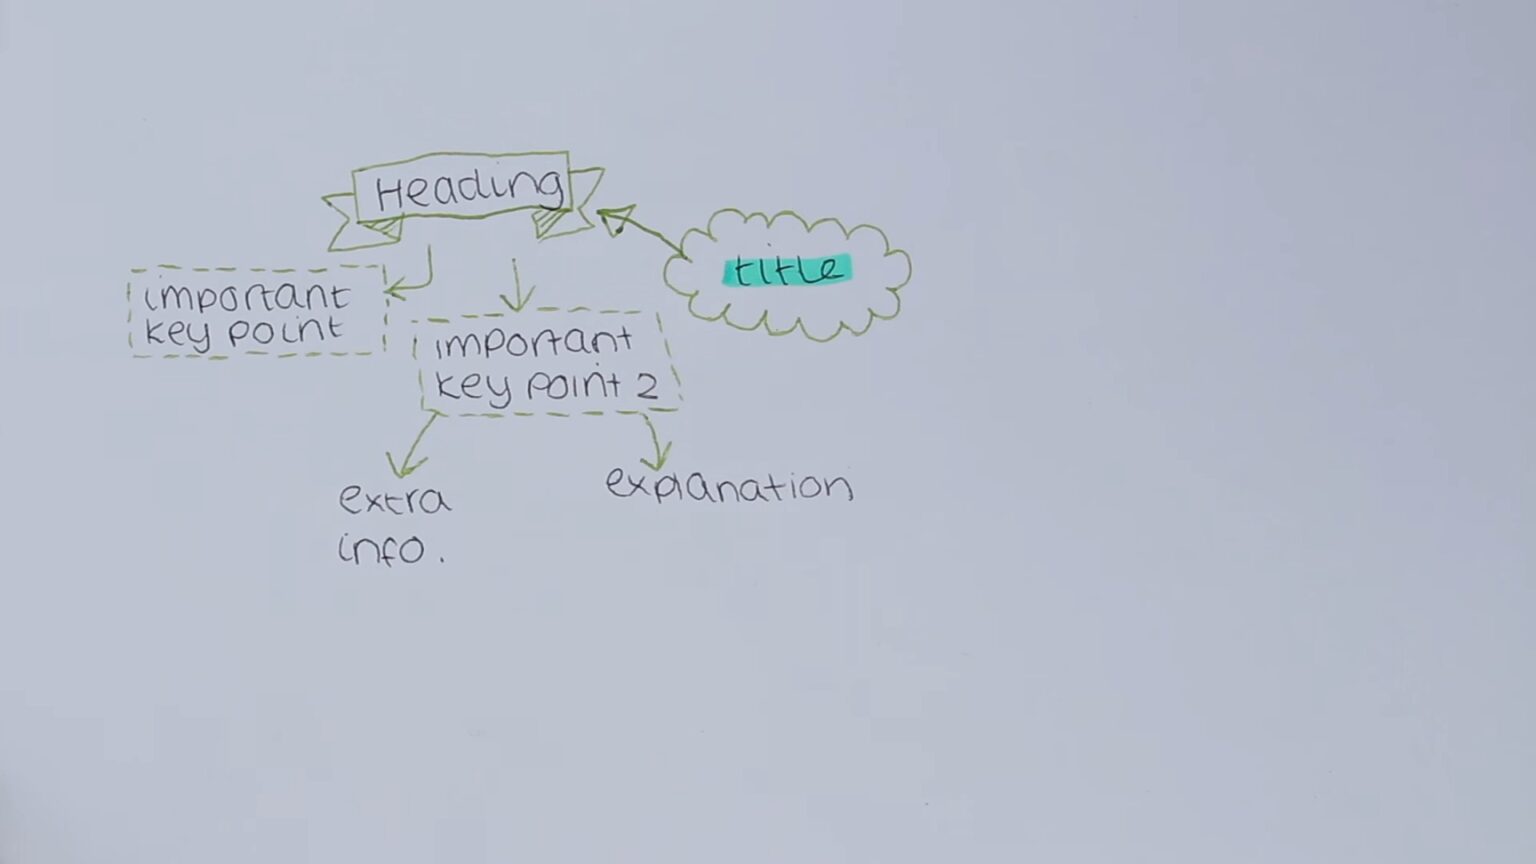 Heading
title
important
key point
important
key point 2
extra
info.
explanation